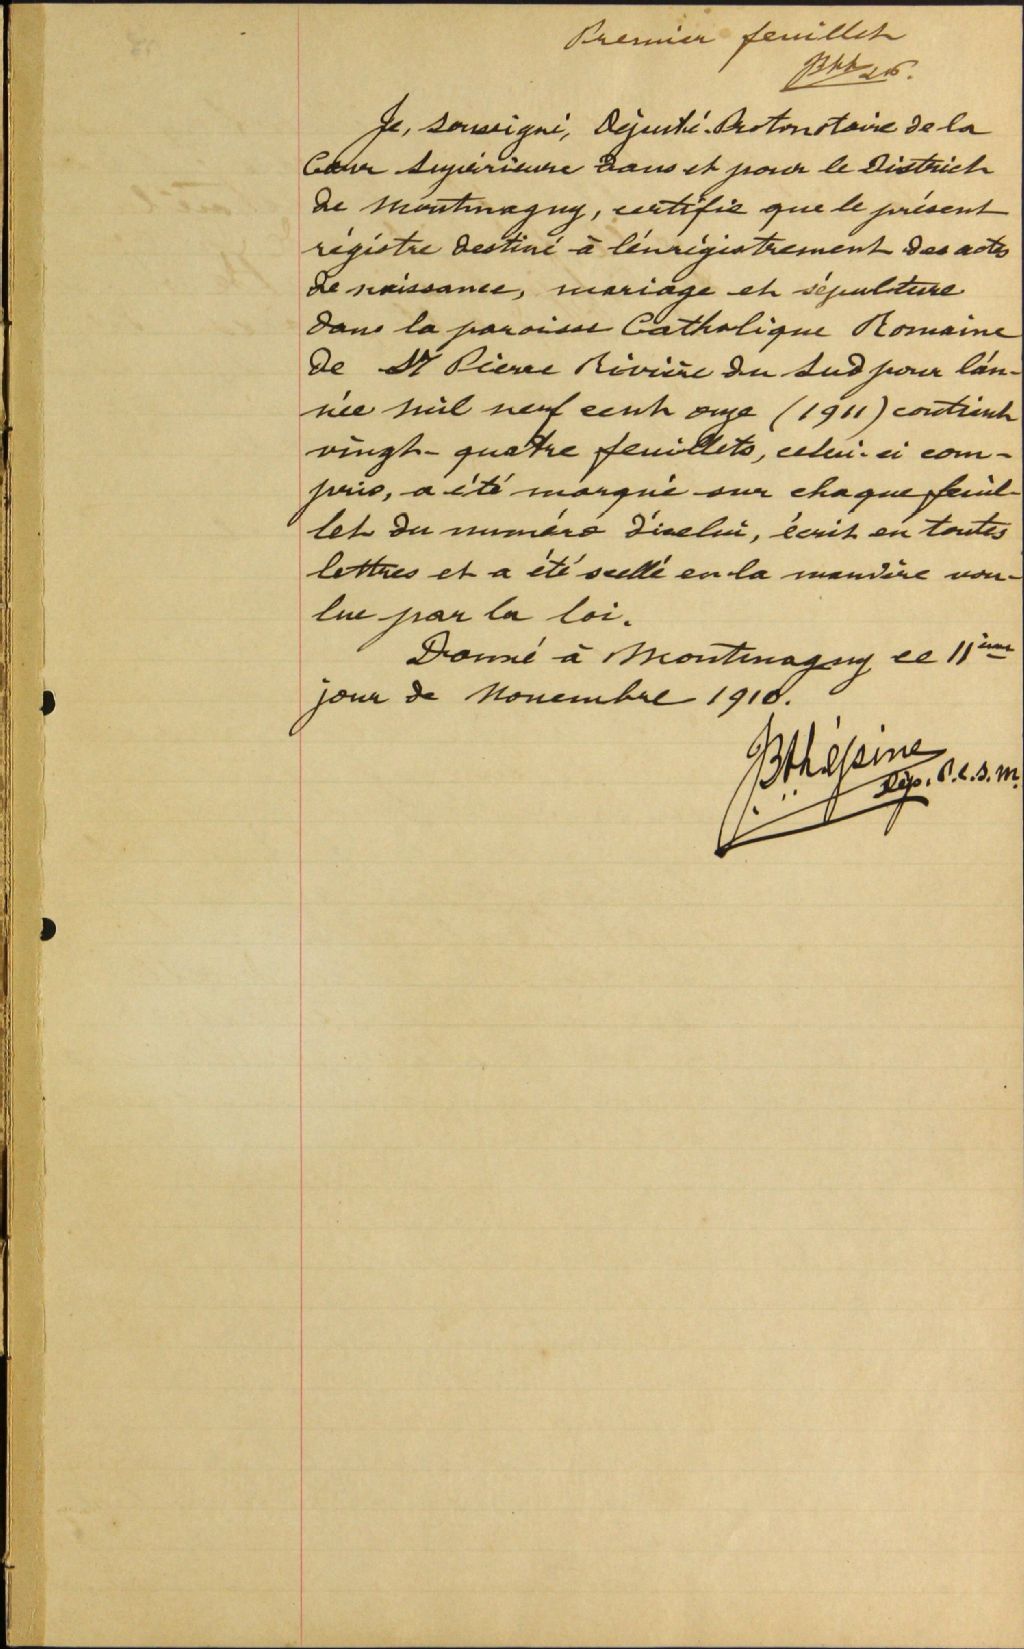 Premier feuillet
Je, soussigné, Député-Protonotaire de la
Cour Supérieure dans et pour le District
de Montmagny, certifie que le présent
régistre destiné à l'enrégistrement des actes
de naissance, mariage et sépulture
dans la paroisse Catholique Romaine
de St Pierre Rivière du Sud pour l'an-
née mil neuf cent onze (1911) contient
vingt-quatre feuillets, celui-ci com-
pris, a été marqué sur chaque feuil-
let du numéro d'icelui, écrit en toutes
lettres et a été scellé en la manière vou-
lue par la loi.
Donné à Montmagny ce 11ième
jour de Novembre 1910.
Dép. P.C.S.M.